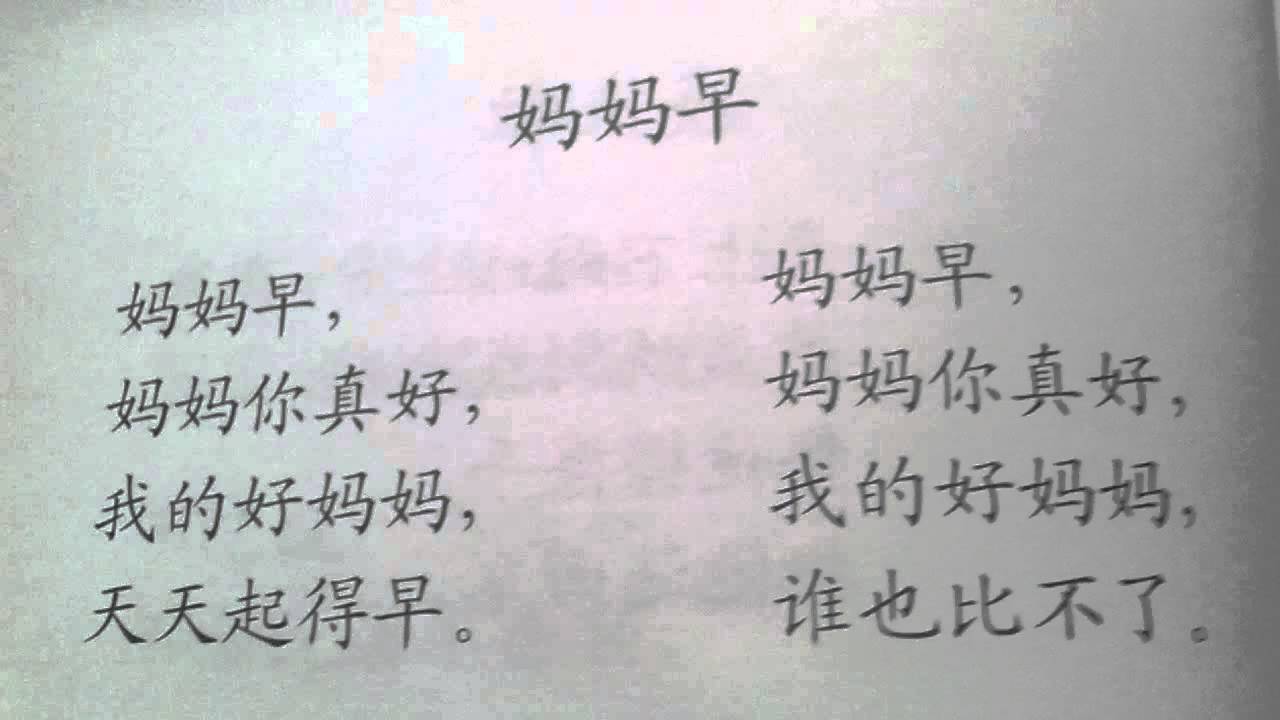 妈妈早
妈妈早，
妈妈你真好，
我的好妈妈，
天天起得早。
妈妈早，
妈妈你真好，
我的好妈妈，
谁也比不了。